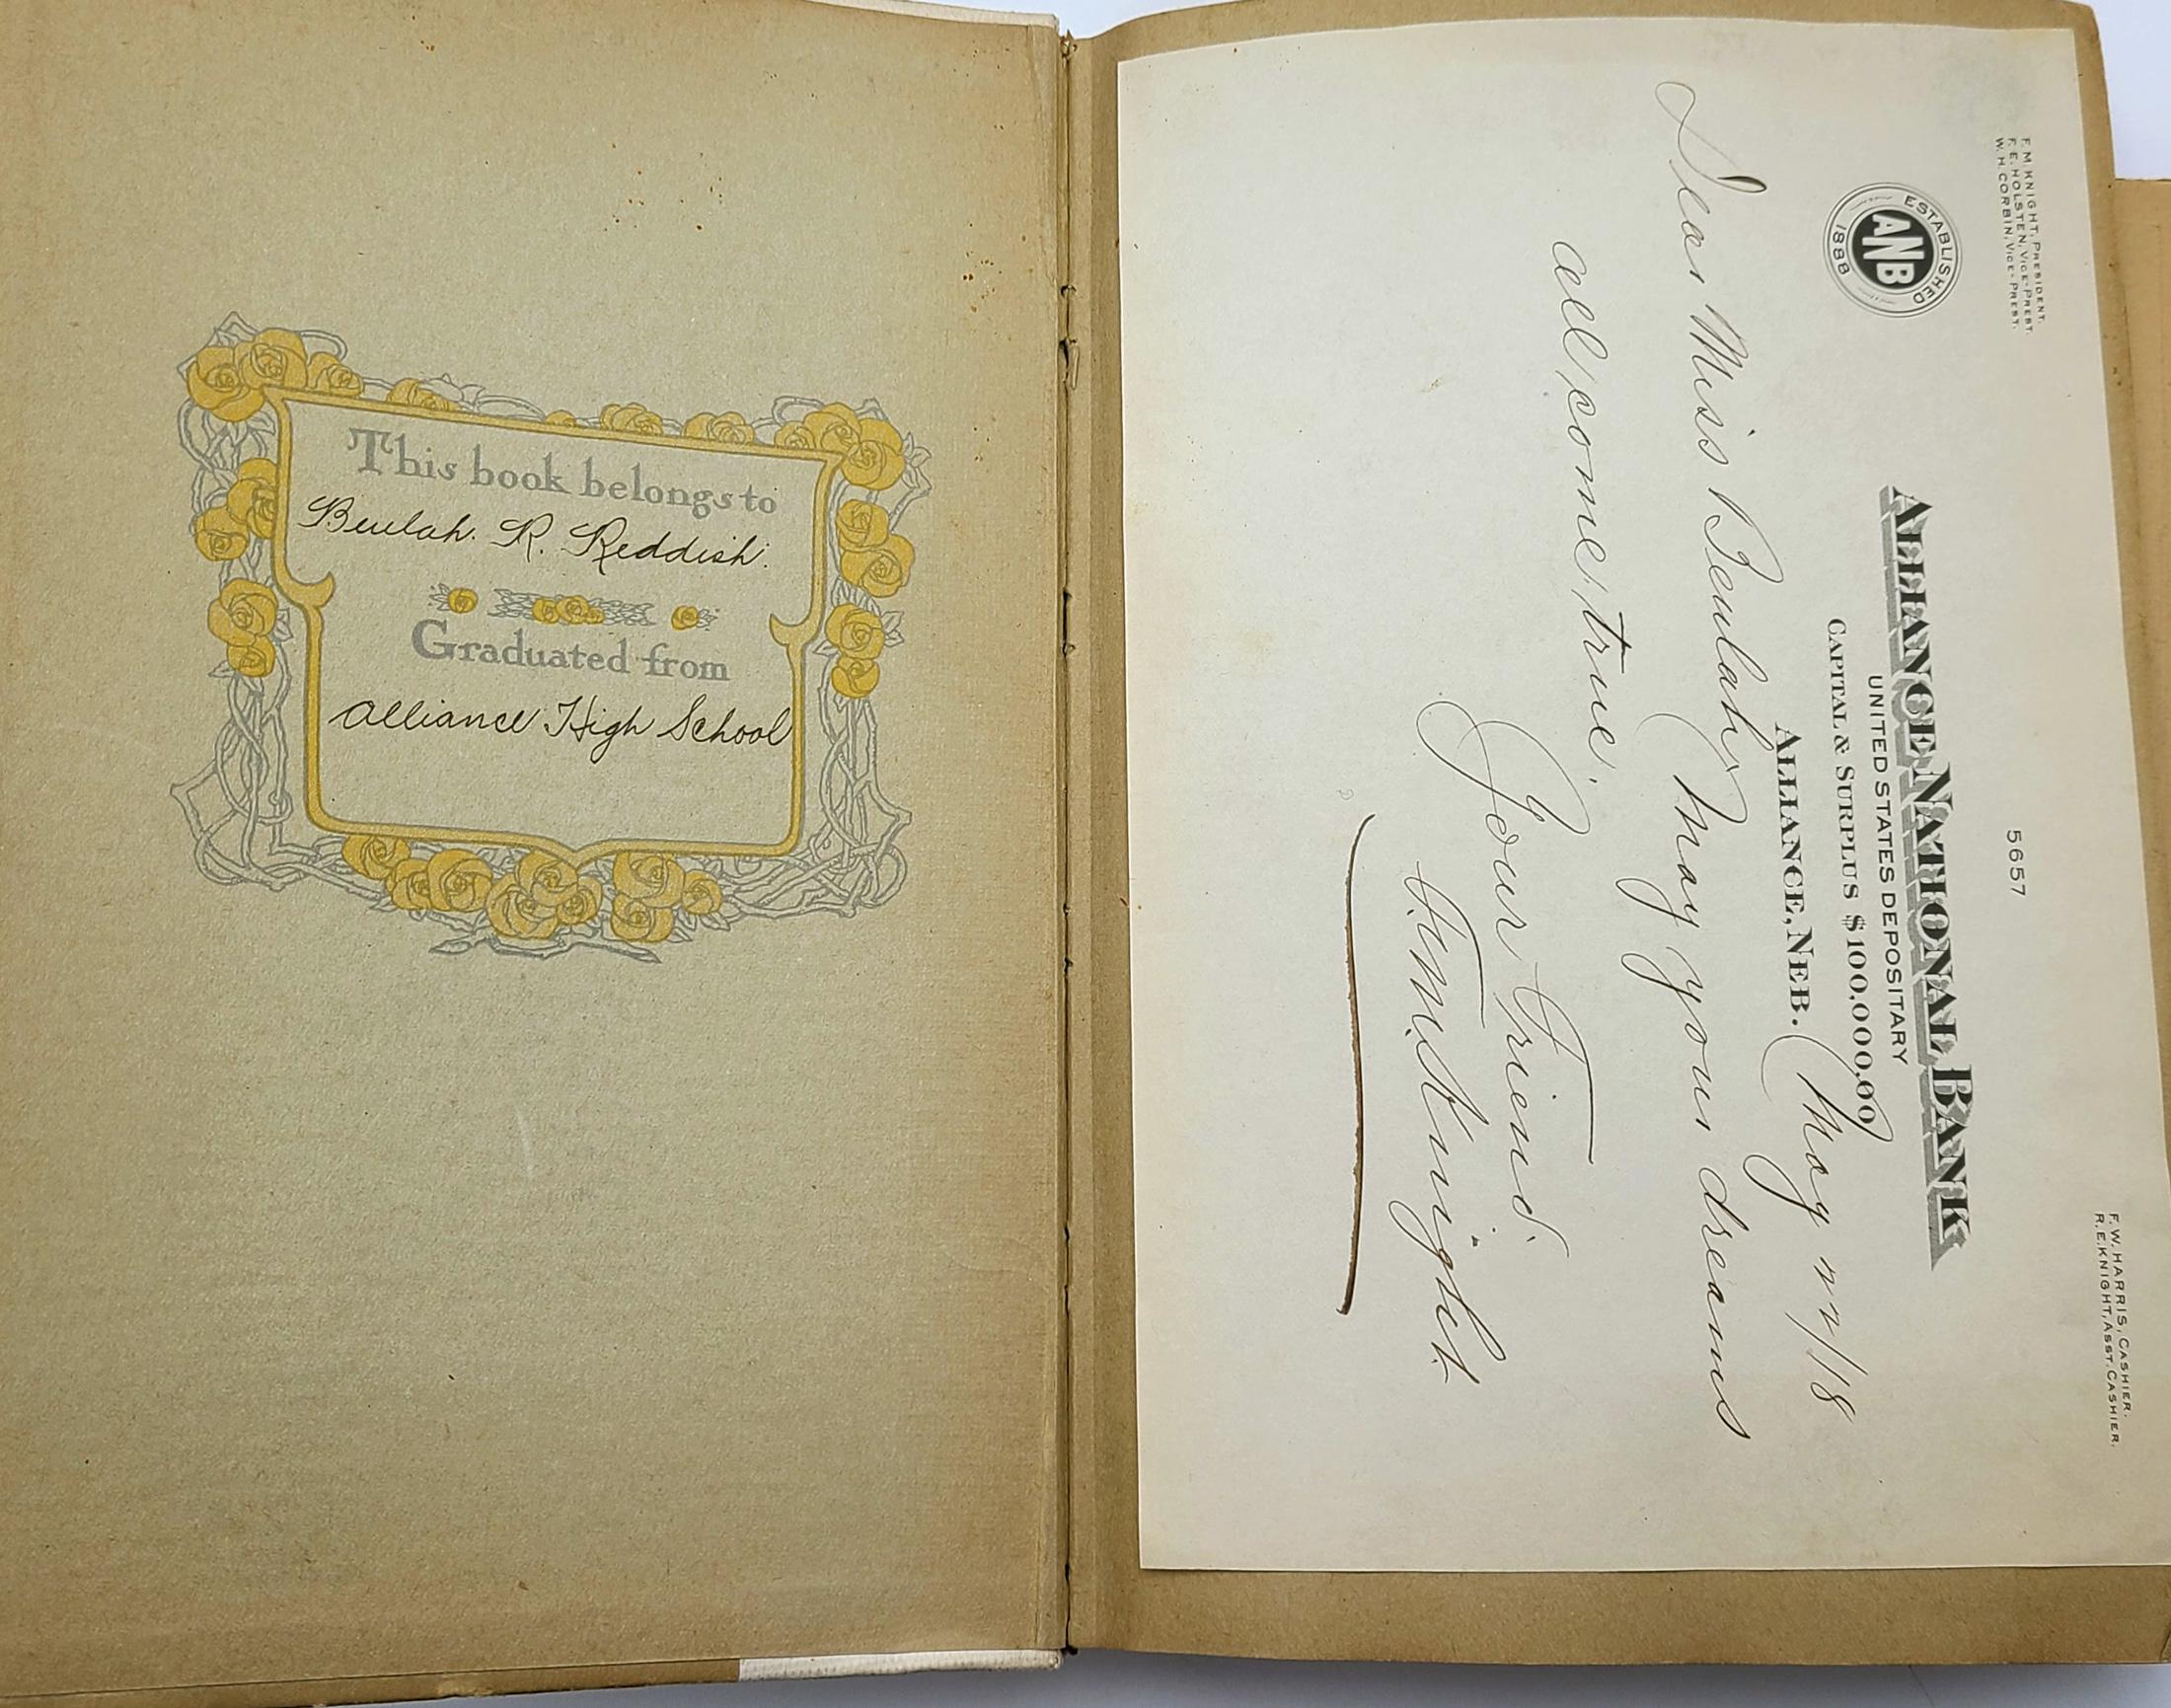 This book belongs to
Beulah. R. Reddish.
Graduated from
Alliance High School
F. M. KNIGHT, PRESIDENT.
F. E. HOLSTEN, VICE-PREST.
W. H. CORBIN, VICE-PREST.
5657
F. W. HARRIS, CASHIER.
R. E. KNIGHT, ASST. CASHIER.
ESTABLISHED
ANB
1888
ALLIANCE NATIONAL BANK
UNITED STATES DEPOSITARY
CAPITAL & SURPLUS $100,000.00
ALLIANCE, NEB.
May 22/18
Dear Miss Beulah, May your dreams
all come true.
Your Friend
F. M. Knight